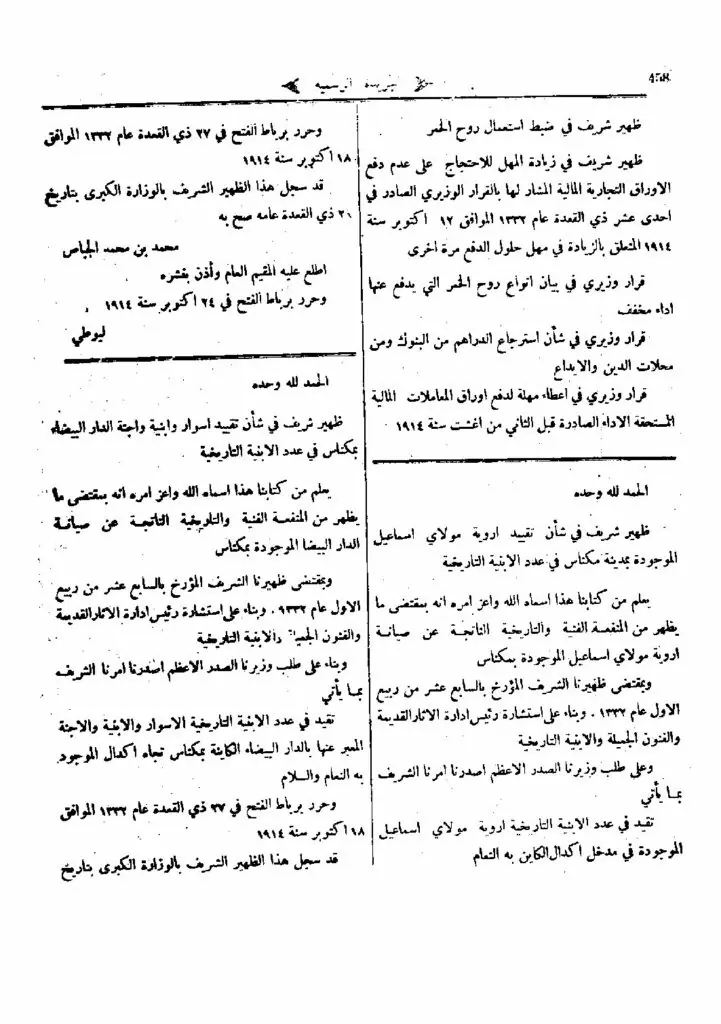 458
الجريدة الرسمية
ظهير شريف في ضبط استعمال روح الخمر
ظهير شريف في زيادة المهل للاحتجاج على عدم دفع
الاوراق التجارية المالية المشار لها بالقرار الوزيري الصادر في
احدى عشر ذي القعدة عام ١٣٣٢ الموافق ١٢ اكتوبر سنة
١٩١٤ المتعلق بالزيادة في مهل حلول الدفع مرة اخرى
قرار وزيري في بيان انواع روح الخمر التي يدفع عنها
اداء مخفف
قرار وزيري في شأن استرجاع الدراهم من البنوك ومن
محلات الدين والايداع
قرار وزيري في اعطاء مهلة لدفع اوراق المعاملات المالية
المستحقة الاداء الصادرة قبل الثاني من اغشت سنة ١٩١٤
الحمد لله وحده
ظهير شريف في شأن تقييد اروية مولاي اسماعيل
الموجودة بمدينة مكناس في عدد الابنية التاريخية
يعلم من كتابنا هذا اسماه الله واعز امره انه بمقتضى ما
يظهر من المنفعة الفنية والتاريخية الناتجة عن صيانة
اروية مولاي اسماعيل الموجودة بمكناس
وبمقتضى ظهيرنا الشريف المؤرخ بالسابع عشر من ربيع
الاول عام ١٣٣٢ . وبناء على استشارة رئيس ادارة الاثار القديمة
والفنون الجميلة والابنية التاريخية
وعلى طلب وزيرنا الصدر الاعظم اصدرنا امرنا الشريف
بما يأتي
تقيد في عدد الابنية التاريخية اروية مولاي اسماعيل
الموجودة في مدخل اكدال الكاين به النعام
وحرر برباط الفتح في ٢٧ ذي القعدة عام ١٣٣٢ الموافق
١٨ اكتوبر سنة ١٩١٤
قد سجل هذا الظهير الشريف بالوزارة الكبرى بتاريخ
ذي القعدة عامه صح به
محمد بن محمد الجباص
اطلع عليه المقيم العام وأذن بنشره
وحرر برباط الفتح في ٢٤ اكتوبر سنة ١٩١٤
ليوطي
الحمد لله وحده
ظهير شريف في شأن تقييد اسوار وابنية واجنة الدار البيضاء
بمكناس في عدد الابنية التاريخية
يعلم من كتابنا هذا اسماه الله واعز امره انه بمقتضى ما
يظهر من المنفعة الفنية والتاريخية الناتجة عن صيانة
الدار البيضا الموجودة بمكناس
وبمقتضى ظهيرنا الشريف المؤرخ بالسابع عشر من ربيع
الاول عام ١٣٣٢ . وبناء على استشارة رئيس ادارة الاثار القديمة
والفنون الجميلة والابنية التاريخية
وبناء على طلب وزيرنا الصدر الاعظم اصدرنا امرنا الشريف
بما يأتي
تقيد في عدد الابنية التاريخية الاسوار والابنية والاجنة
المعبر عنها بالدار البيضاء الكاينة بمكناس تجاه اكدال الموجود
به النعام والسلام
وحرر برباط الفتح في ٢٧ ذي القعدة عام ١٣٣٢ الموافق
١٨ اكتوبر سنة ١٩١٤
قد سجل هذا الظهير الشريف بالوزارة الكبرى بتاريخ